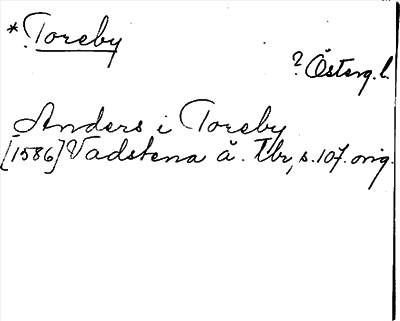 *Toreby
? Österg. l.
Anders i Toreby
[1586] Vadstena å. Tbr, s. 107. orig.